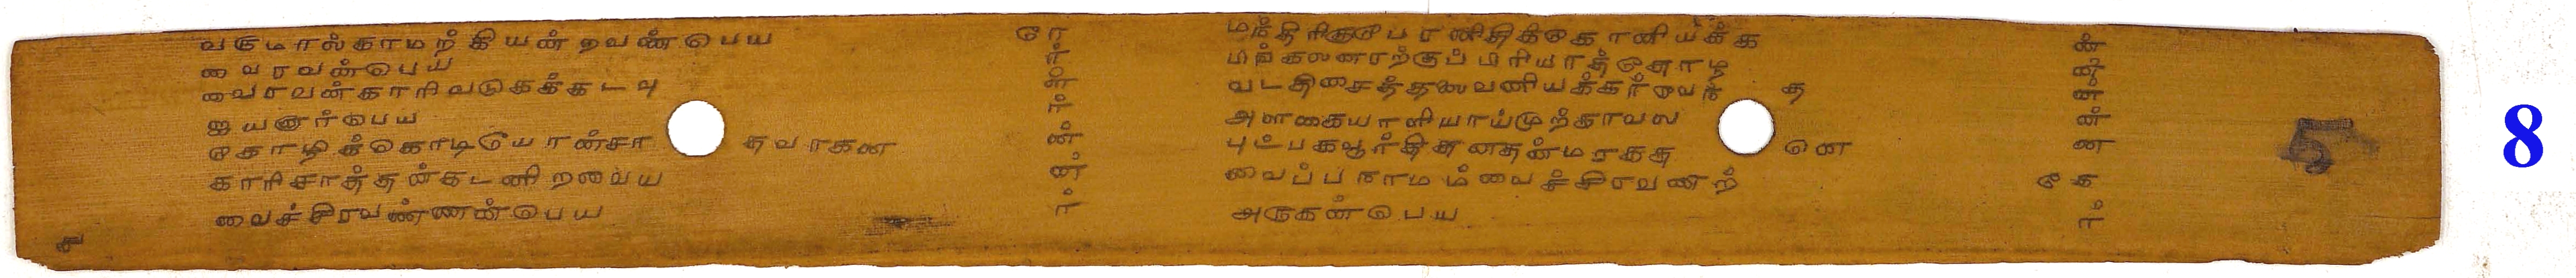 வருமால்காமற் கியன் றவண்பெய ரே
வைரவன்பெய ர்
வைரவன்காரிவடுகக்கடவு ளி
ஐயனார்பெய ர்
கோழிக்கொடியோன்சா தவாகன ன்
காரிசாத்தன்கடனிறவைய ன்
வைச்சிரவண்ணன்பெய ர்
மந்திரிகுபேரனிதிக்கோனியக்க ன்
பிங்கலனரற்குப் பிரியாத்தோழ ன்
வடதிசைத்தலைவனியக்கர்வேந் த ன்
அளகையாளியாய்முற்காவல ன்
புட்பகவூர்திதனதன்மரகத னெ ன
வைப்பநாமம்வைச்சிரவணற் கே
அருகன்பெய ர்
5
8